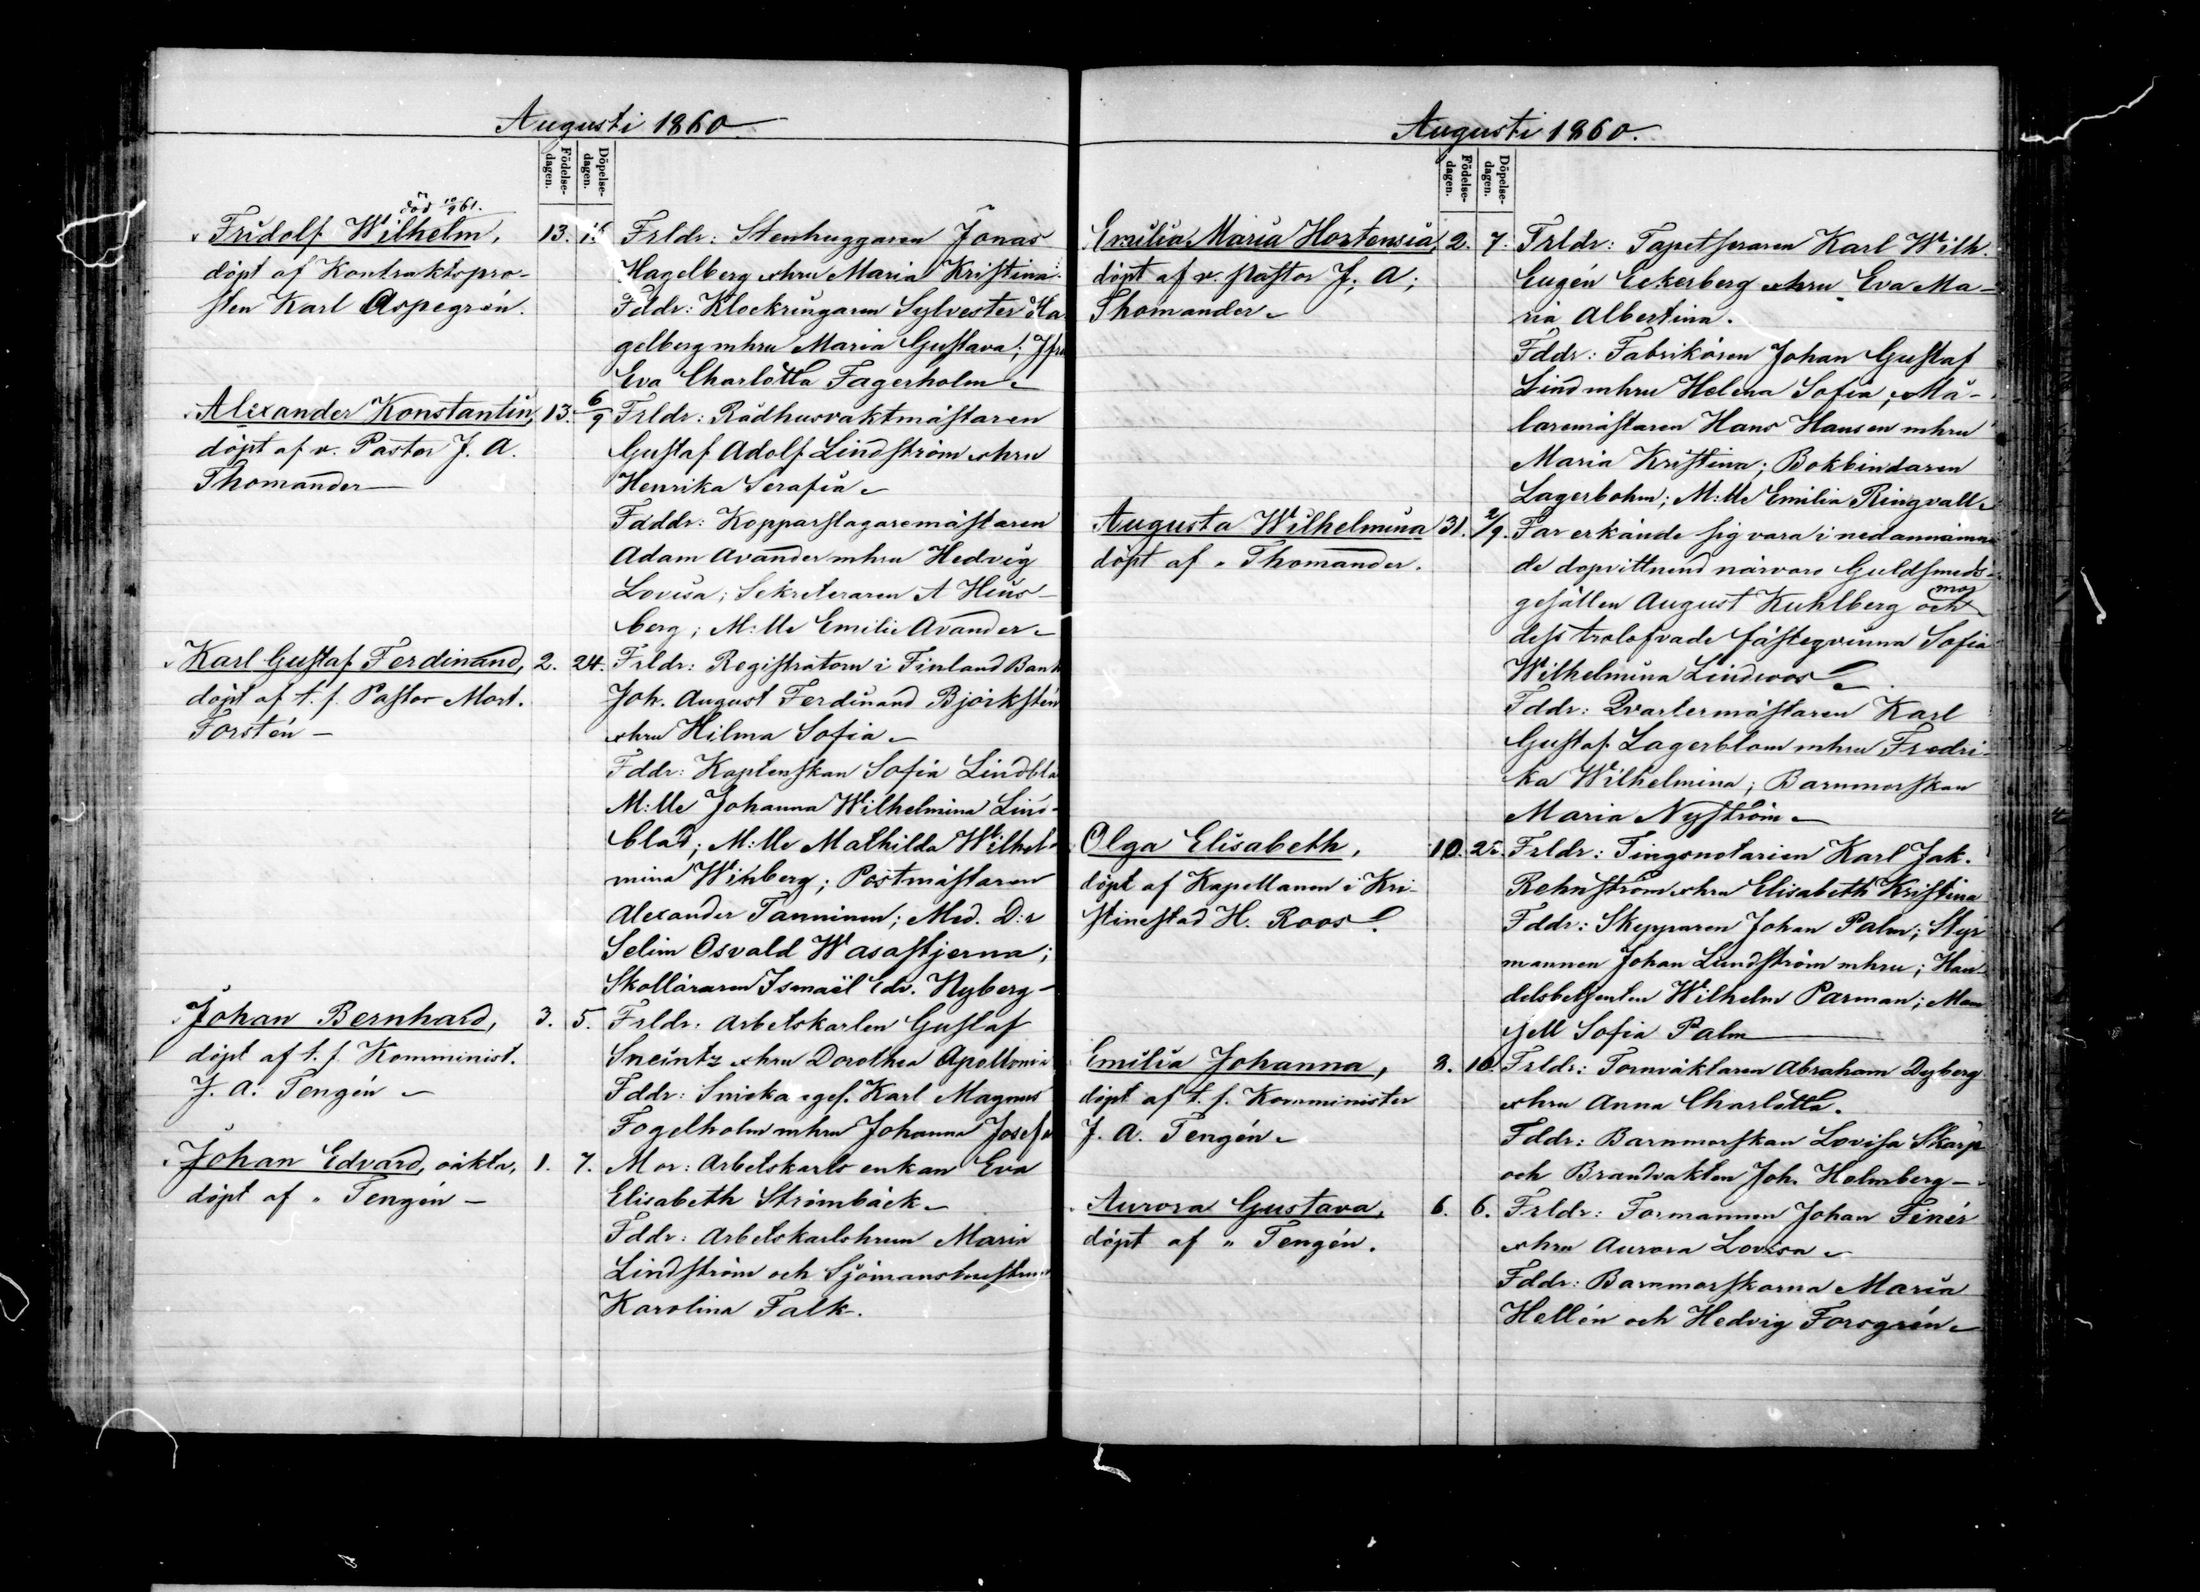 Augusti 1860
Födelse-dagen.
Döpelse-dagen.
död 10/9 61.
Fridolf Wilhelm, 13. 16.
döpt af Kontraktspro-
sten Karl Aspegrén.
Frldr: Stenhuggaren Jonas
Hagelberg o hru Maria Kristina.
Fddr: Klockringaren Sylvester Ha
gelberg m hru Maria Gustava; Jfru
Eva Charlotta Fagerholm
Alexander Konstantin, 13. 6/9
döpt af v. Pastor J. A.
Thomander
Frldr: Rådhusvaktmästaren
Gustaf Adolf Lindström o hru
Henrika Serafia
Fdddr: Kopparslagaremästaren
Adam Avander m hru Hedvig
Lovisa; Sekreteraren A Hus-
berg; M:lle Emilie Avander
Karl Gustaf Ferdinand, 2. 24.
döpt af t. f. Pastor Mort.
Forstén
Frldr: Registratorn i Finland Bank
Joh. August Ferdinand Björkstén
o hru Hilma Sofia
Fddr: Kaptenskan Sofia Lindbla
M:lle Johanna Wilhelmina Lind-
blad; M:lle Mathilda Wilhel-
mina Winberg; Postmästaren
Alexander Tanninen; Med. D:r
Selim Osvald Wasastjerna;
Skolläraren Ismaël Edv. Nyberg
Johan Bernhard, 3. 5.
döpt af t. f. Komminist.
J. A. Tengén
Frldr: Arbetskarlen Gustaf
Sneintz o hru Dorothea Apollonia
Fddr: Snickaregef. Karl Magnus
Fogelholm m hru Johanna Josefa
Johan Edvard, oäkta, 1. 7.
döpt af " Tengén
Mor: Arbetskarls enkan Eva
Elisabeth Strömbäck
Fddr: Arbetskarlshrun Maria
Lindström och Sjömanshustrun
Karolina Falk.
Augusti 1860.
Födelse-dagen.
Döpelse-dagen.
Emilia Maria Hortensia, 2. 7.
döpt af v. Pastor J. A.
Thomander
Frldr: Tapetseraren Karl Wilh.
Eugén Eckerberg o hru Eva Ma-
ria Albertina.
Fddr: Fabrikören Johan Gustaf
Lind m hru Helena Sofia; Må-
laremästaren Hans Hansen m hru
Maria Kristina; Bokbindaren
Lagerbohm; M:lle Emilia Ringvall
Augusta Wilhelmina 31. 2/9.
döpt af " Thomander.
Far erkände sig vara i nedannämn
de dopvittnens närvaro Guldsmeds-
gesällen August Kuhlberg och mor
dess trolofvade fästeqvinna Sofia
Wilhelmina Lindroos
Fddr: Qvartermästaren Karl
Gustaf Lagerblom m hru Fredri-
ka Wilhelmina; Barnmorskan
Maria Nyström
Olga Elisabeth, 10.
döpt af Kapellanen i Kri-
stinestad H. Roos.
Frldr: Tingsnotarien Karl Jak.
Rehnström o hru Elisabeth Kristina
Fddr: Skepparen Johan Palm; Styr
mannen Johan Lundström m hru; Han-
delsbetjenten Wilhelm Parman; Mam
sell Sofia Palm
Emilia Johanna, 8. 10.
döpt af t. f. Komminister
J. A. Tengén
Frldr: Tornväktaren Abraham Dyberg
o hru Anna Charlotta.
Fddr: Barnmorskan Lovisa Skarp
och Brandvakten Joh. Holmberg
Aurora Gustava, 6. 6.
döpt af " Tengén.
Frldr: Formannen Johan Finér
o hru Aurora Lovisa
Fddr: Barnmorskorna Maria
Hellén och Hedvig Forsgrén